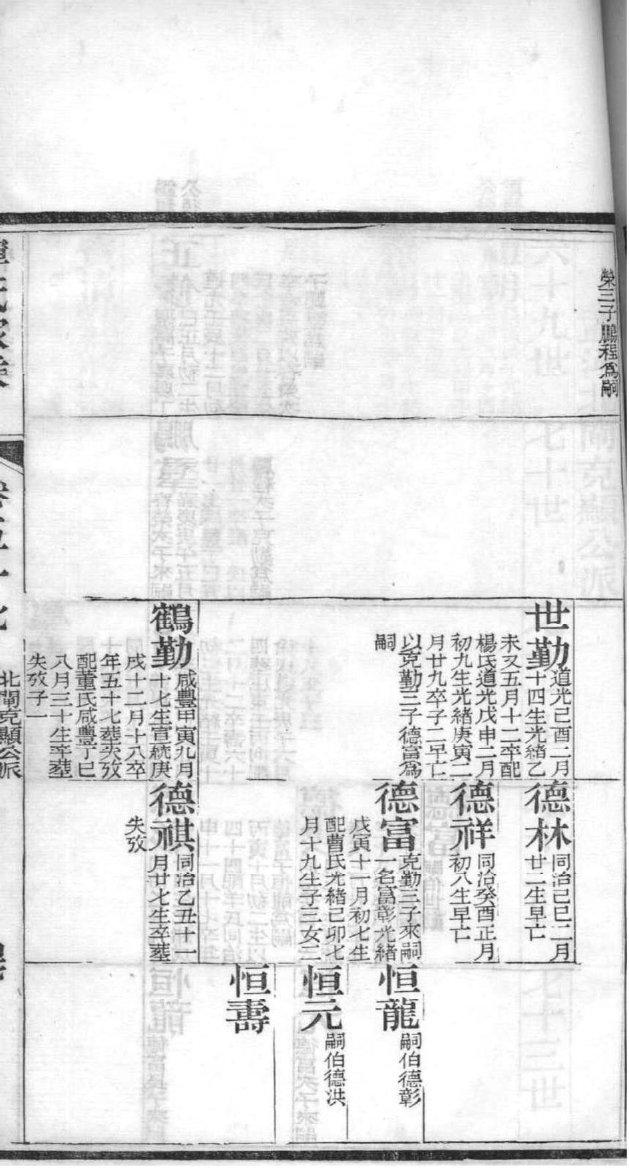 榮三子鵬程爲嗣
世勤
道光己酉二月
十四生光緒乙
未又五月十二卒配
楊氏道光戊申二月
初九生光緒庚寅二
月廿九卒子二早亡
以克勤三子德富爲
嗣
鶴勤
咸豐甲寅九月
十七生宣統庚
戌十二月十八卒
年五十七葬失攷
配董氏咸豐丁巳
八月三十生卒葬
失攷子一
德林
同治己巳二月
廿二生早亡
德祥
同治癸酉正月
初八生早亡
德富
克勤三子來嗣
一名富彰光緒
戊寅十一月初七生
配曹氏光緒己卯七
月十九生子三女二
德祺
同治乙丑十一
月廿七生卒葬
失攷
恒龍
嗣伯德彰
恒元
嗣伯德洪
恒壽
北閘克顯公派